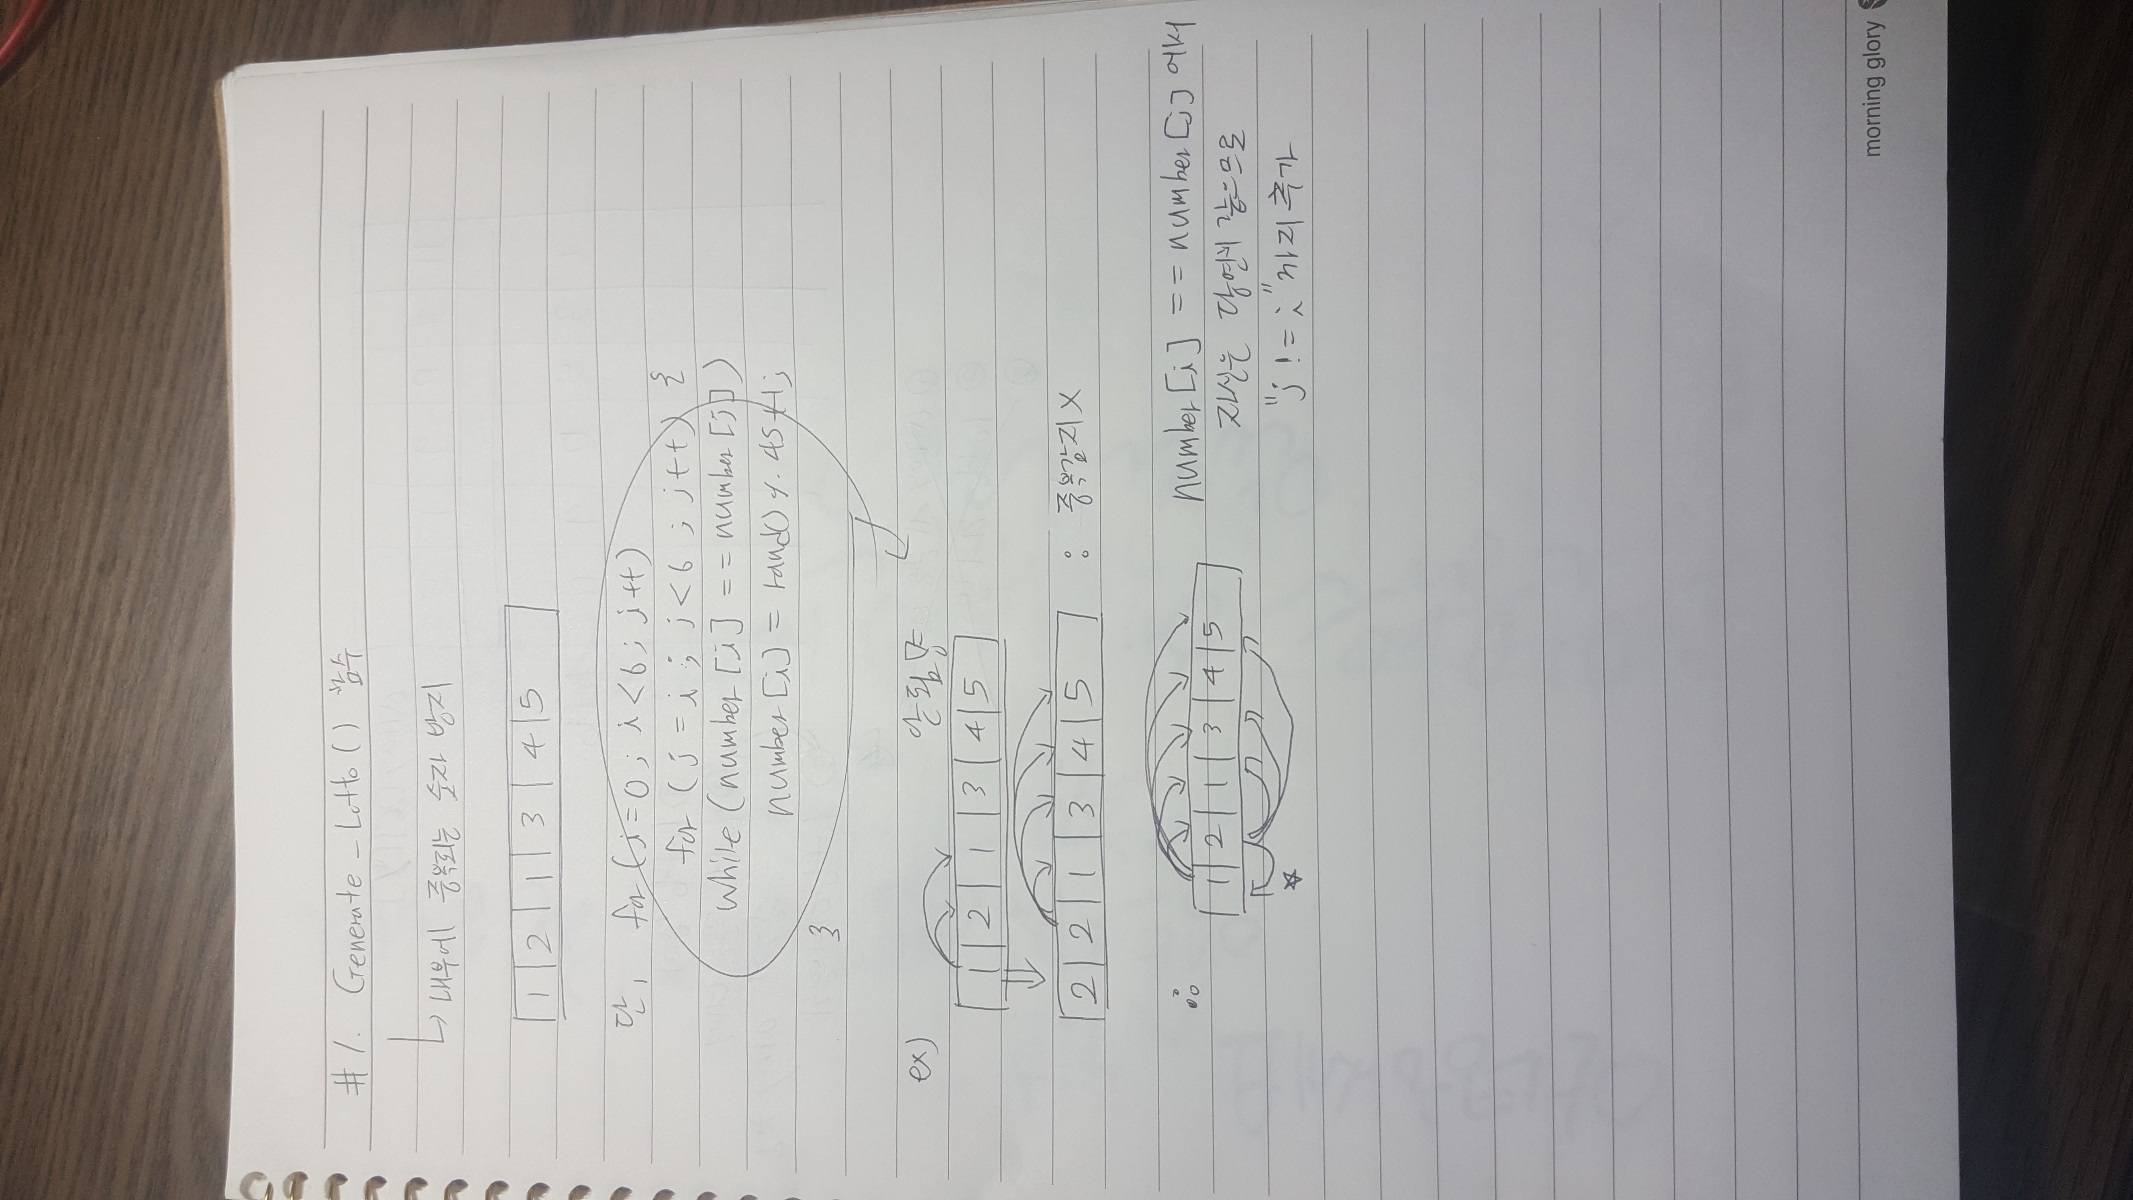 #1. Generate-Lotto() 함수
↳ 내부에 중복되는 숫자 방지
1 | 2 | 1 | 3 | 4 | 5
단, for (i=0; i<6; i++)
for (j=i; j<6; j++) {
while (number[i] == number[j])
number[i] = rand() % 45+1;
}
ex) 안됨
1 | 2 | 1 | 3 | 4 | 5
2 | 2 | 1 | 3 | 4 | 5 : 중복감지 X
∴ number[i] == number[j] 에서
1 | 2 | 1 | 3 | 4 | 5 자신은 당연히 같음으로
"j != i" 까지 추가
morning glory